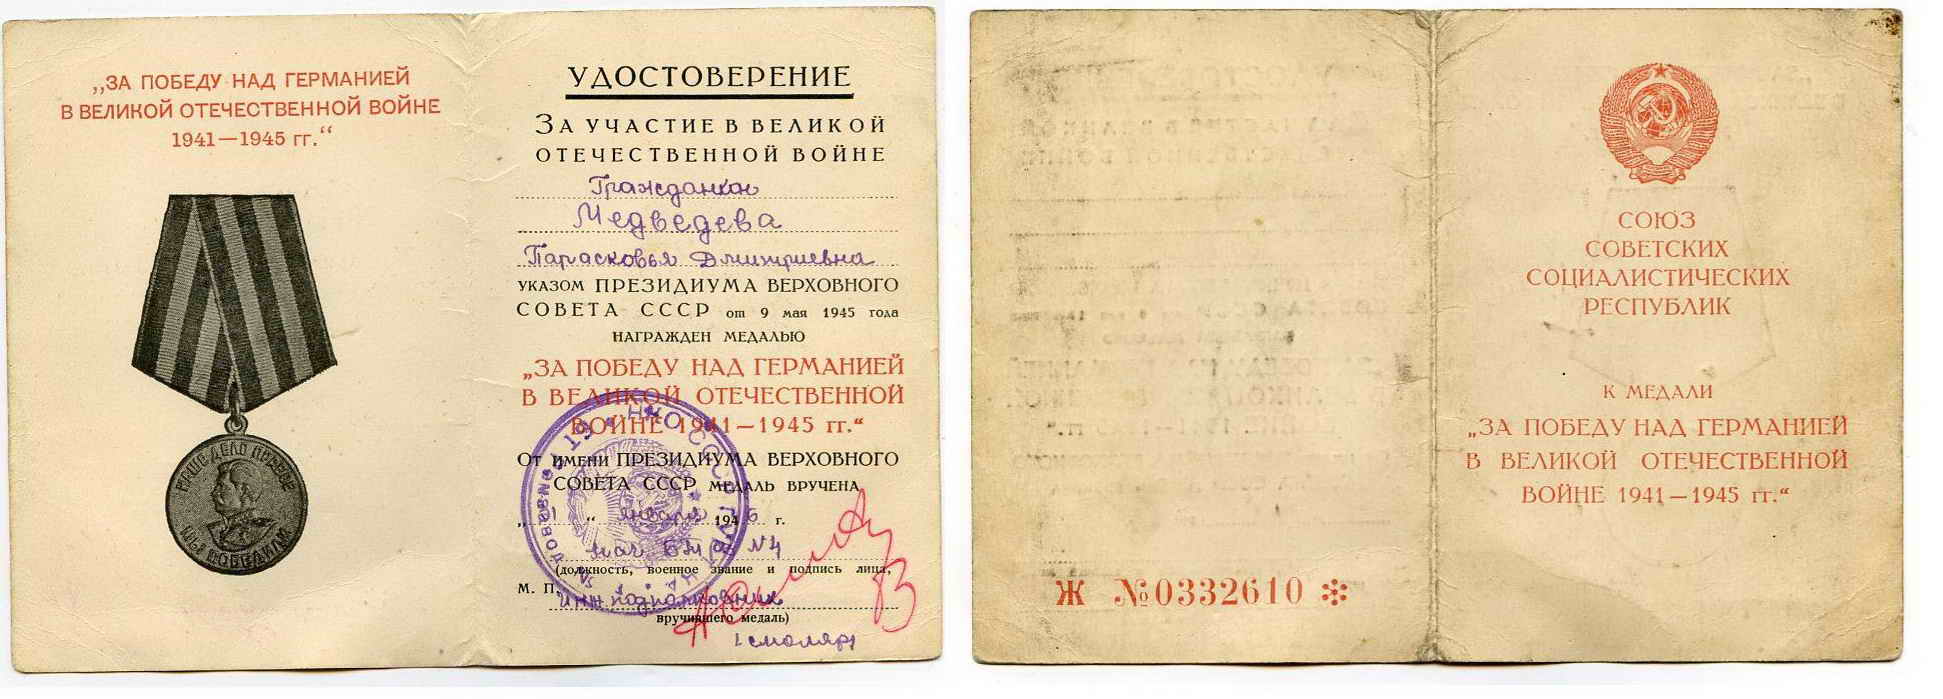 „ЗА ПОБЕДУ НАД ГЕРМАНИЕЙ
В ВЕЛИКОЙ ОТЕЧЕСТВЕННОЙ ВОЙНЕ
1941—1945 гг.“
НАШЕ ДЕЛО ПРАВОЕ
МЫ ПОБЕДИЛИ
УДОСТОВЕРЕНИЕ
ЗА УЧАСТИЕ В ВЕЛИКОЙ
ОТЕЧЕСТВЕННОЙ ВОЙНЕ
Гражданка
Медведева
Парасковья Дмитриевна
УКАЗОМ ПРЕЗИДИУМА ВЕРХОВНОГО
СОВЕТА СССР от 9 мая 1945 года
НАГРАЖДЕН МЕДАЛЬЮ
„ЗА ПОБЕДУ НАД ГЕРМАНИЕЙ
В ВЕЛИКОЙ ОТЕЧЕСТВЕННОЙ
ВОЙНЕ 1941—1945 гг.“
ОТ ИМЕНИ ПРЕЗИДИУМА ВЕРХОВНОГО
СОВЕТА СССР МЕДАЛЬ ВРУЧЕНА
„1“ января 1946 г.
нач. №4
(должность, военное звание и подпись лица,
М. П. инж. подполковник
вручившего медаль)
/смоляр/
СОЮЗ
СОВЕТСКИХ
СОЦИАЛИСТИЧЕСКИХ
РЕСПУБЛИК
К МЕДАЛИ
„ЗА ПОБЕДУ НАД ГЕРМАНИЕЙ
В ВЕЛИКОЙ ОТЕЧЕСТВЕННОЙ
ВОЙНЕ 1941—1945 гг.“
Ж №0332610